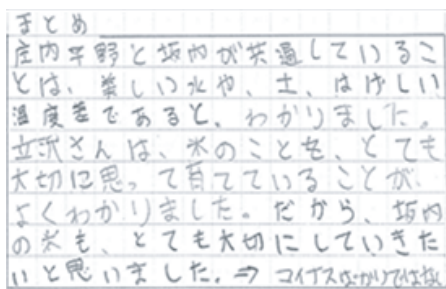 まとめ
庄内平野と坂内が共通しているこ
とは、美しい水や、土、はげしい
温度差であると、わかりました。
立沢さんは、米のことを、とても
大切に思って育てていることが、
よくわかりました。だから、坂内
の米も、とても大切にしていきた
いと思いました。⇒ マイナスばかりではない